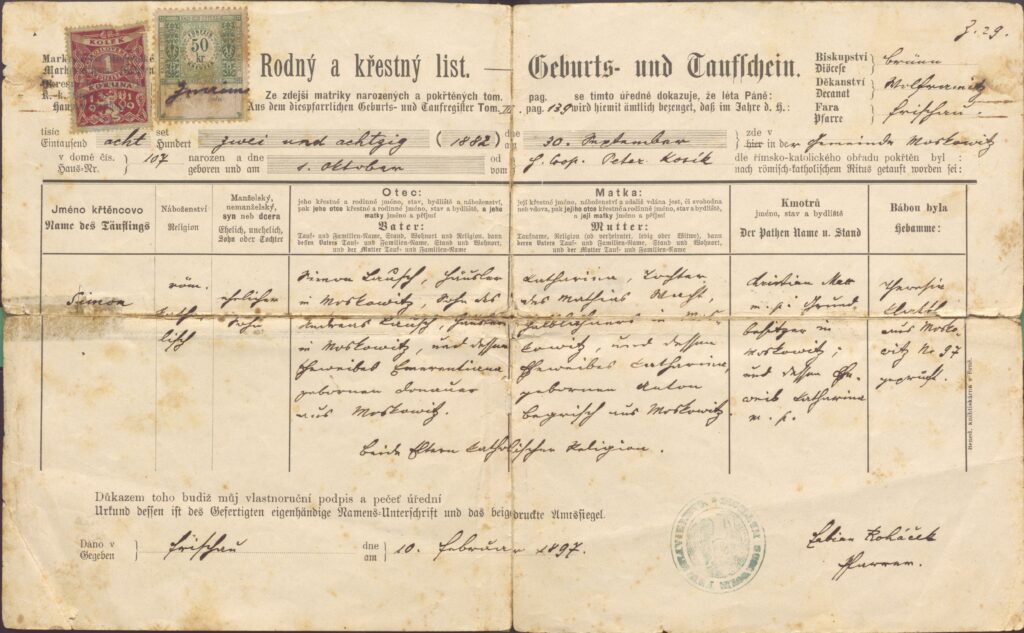 Z. 29.
KOLEK
1
KORUNA
50
kr
Rodný a křestný list.
Geburts- und Taufschein.
Biskupství
Diöcese
Brünn
Děkanství
Decanat
Wolframitz
Fara
Pfarre
Frischau.
Ze zdejší matriky narozených a pokřtěných tom.
Aus dem diespfarrlichen Geburts- und Taufregister Tom.
pag. se tímto úředně dokazuje, že léta Páně:
pag. 139 wird hiemit ämtlich bezeuget, daß im Jahre d. H.:
tisíc set
Eintausend acht Hundert zwei und achtzig (1882)
dne
am
30. September
zde v
hier in der Gemeinde Moskowitz
v domě čís.
Haus-Nr. 107
narozen a dne
geboren und am 1. Oktober
od
vom H. Coop. Peter Kosik
dle římsko-katolického obřadu pokřtěn byl:
nach römisch-katholischem Ritus getauft worden sei:
Jméno křtěncovo
Name des Täuflings
Náboženství
Religion
Manželský,
nemanželský,
syn neb dcera
Ehelich, unehelich,
Sohn oder Tochter
Otec:
jeho křestné a rodinné jméno, stav, bydliště a náboženství,
pak jeho otce křestné a rodinné jméno, stav a bydliště, a jeho
matky jméno a příjmí
Vater:
Tauf- und Familien-Name, Stand, Wohnort und Religion, dann
dessen Vaters Tauf- und Familien-Name, Stand und Wohnort,
und der Mutter Tauf- und Familien-Name
Matka:
její křestné jméno, náboženství a udání vdaná jest, či svobodná
neb vdova, pak jejího otce křestné a rodinné jméno, stav a bydliště,
a její matky jméno a příjmí
Mutter:
Taufname, Religion (ob verheiratet, ledig oder Witwe), dann
deren Vaters Tauf- und Familien-Name, Stand und Wohnort,
und der Mutter Tauf- und Familien-Name
Kmotrů
jméno, stav a bydliště
Der Pathen Name u. Stand
Bábou byla
Hebamme:
Simon
röm.
kath
lisch
ehelicher
Sohn
Simon Lausch, Häusler
in Moskowitz, Sohn des
Andreas Lausch, Häusler
in Moskowitz, und dessen
Eheweibes Emerentiana,
gebornen Donauer
aus Moskowitz.
Catharina, Tochter
des Mathias
Halblehners in Mos-
kowitz, und dessen
Eheweibes Catharina,
gebornen Anton
aus Moskowitz.
Christian
m. p. Grund-
besitzer in
Moskowitz;
und dessen Ehe-
weib Catharina
m. p.
Theresia
aus Mosko-
witz No 97
geprüft.
Beide Eltern katholischer Religion.
Bened. knihtiskárna v Brně.
Důkazem toho budiž můj vlastnoruční podpis a pečeť úřední
Urkund dessen ist des Gefertigten eigenhändige Namens-Unterschrift und das beigedruckte Amtssiegel.
Dáno v
Gegeben
Frischau
dne
am
10. Februar 1897.
Fabian Roháček
Pfarrer.